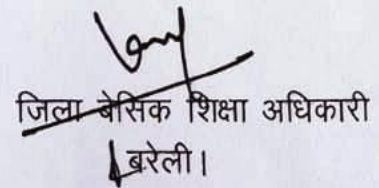 जिला बेसिक शिक्षा अधिकारी
बरेली।